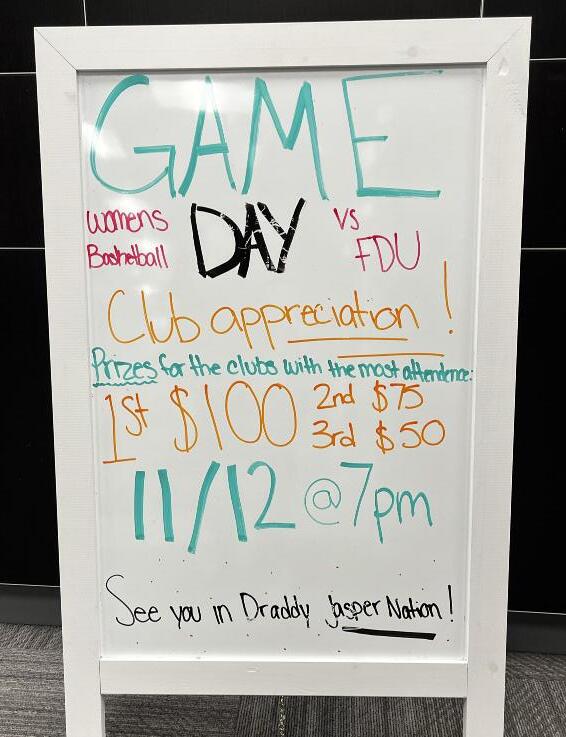 GAME
womens Basketball DAY vs FDU
Club appreciation!
Prizes for the clubs with the most attendence:
1st $100 2nd $75
3rd $50
11/12 @7pm
See you in Draddy Jasper Nation!